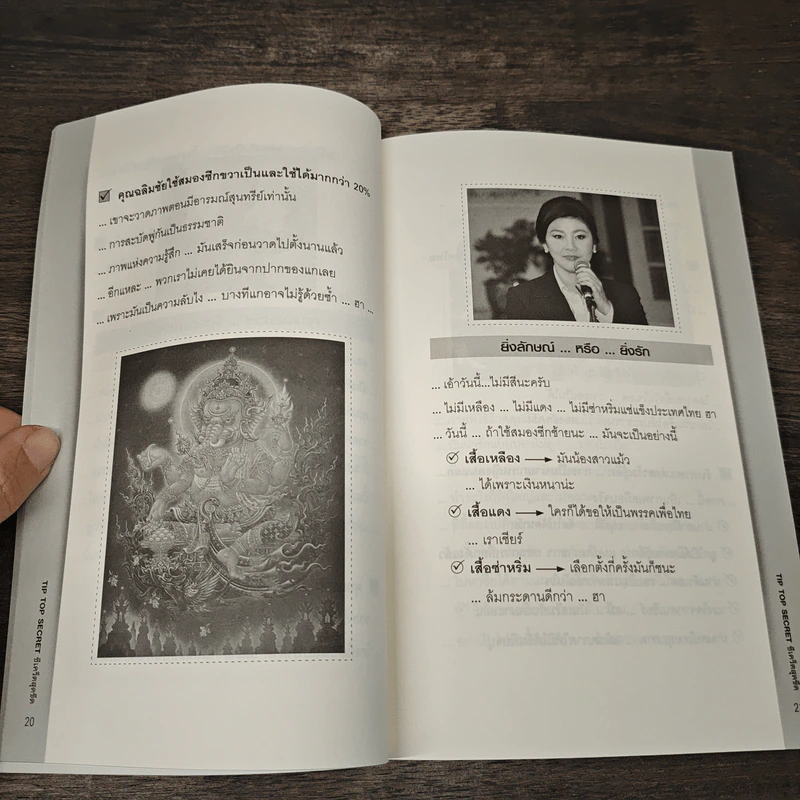 คุณฉลิมชัยใช้สมองซีกขวาเป็นและใช้ได้มากกว่า 20%
... เขาจะวาดภาพตอนมีอารมณ์สุนทรีย์เท่านั้น
... การสะบัดพู่กันเป็นธรรมชาติ
... ภาพแห่งความรู้สึก ... มันเสร็จก่อนวาดไปตั้งนานแล้ว
... อีกแหละ ... พวกเราไม่เคยได้ยินจากปากของแกเลย
... เพราะมันเป็นความลับไง ... บางทีแกอาจไม่รู้ด้วยซ้ำ ... ฮา ...
TIP TOP SECRET ซีเครียดสุดขีด
20
ยิ่งลักษณ์ ... หรือ ... ยิ่งรัก
... เอ้าวันนี้...ไม่มีสีนะครับ
... ไม่มีเหลือง ... ไม่มีแดง ... ไม่มีซ่าหริ่มแช่แข็งประเทศไทย ฮา
... วันนี้ ... ถ้าใช้สมองซีกซ้ายนะ ... มันจะเป็นอย่างนี้
เสื้อเหลือง → มันน้องสาวแม้ว
... ได้เพราะเงินหนาน่ะ
เสื้อแดง → ใครก็ได้ขอให้เป็นพรรคเพื่อไทย
... เราเชียร์
เสื้อซ่าหริ่ม → เลือกตั้งกี่ครั้งมันก็ชนะ
... ล้มกระดานดีกว่า ... ฮา
TIP TOP SECRET ซีเครียดสุดขีด